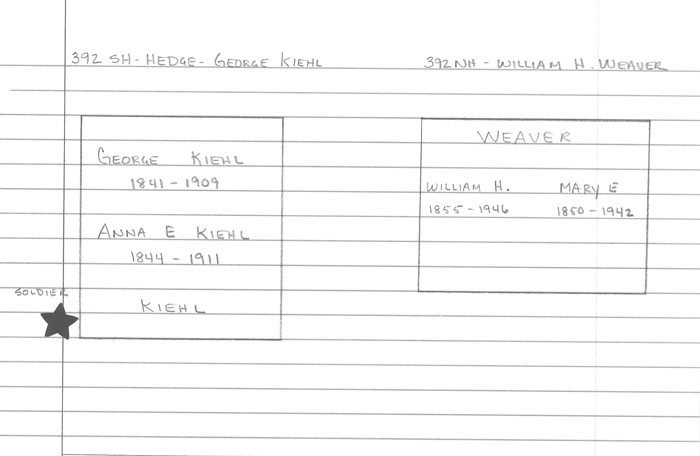 392 SH-HEDGE-GEORGE KIEHL
392NH-WILLIAM H. WEAVER
GEORGE KIEHL
1841-1909
ANNA E KIEHL
1844-1911
KIEHL
SOLDIER
WEAVER
WILLIAM H. MARY E
1855-1946 1850-1942